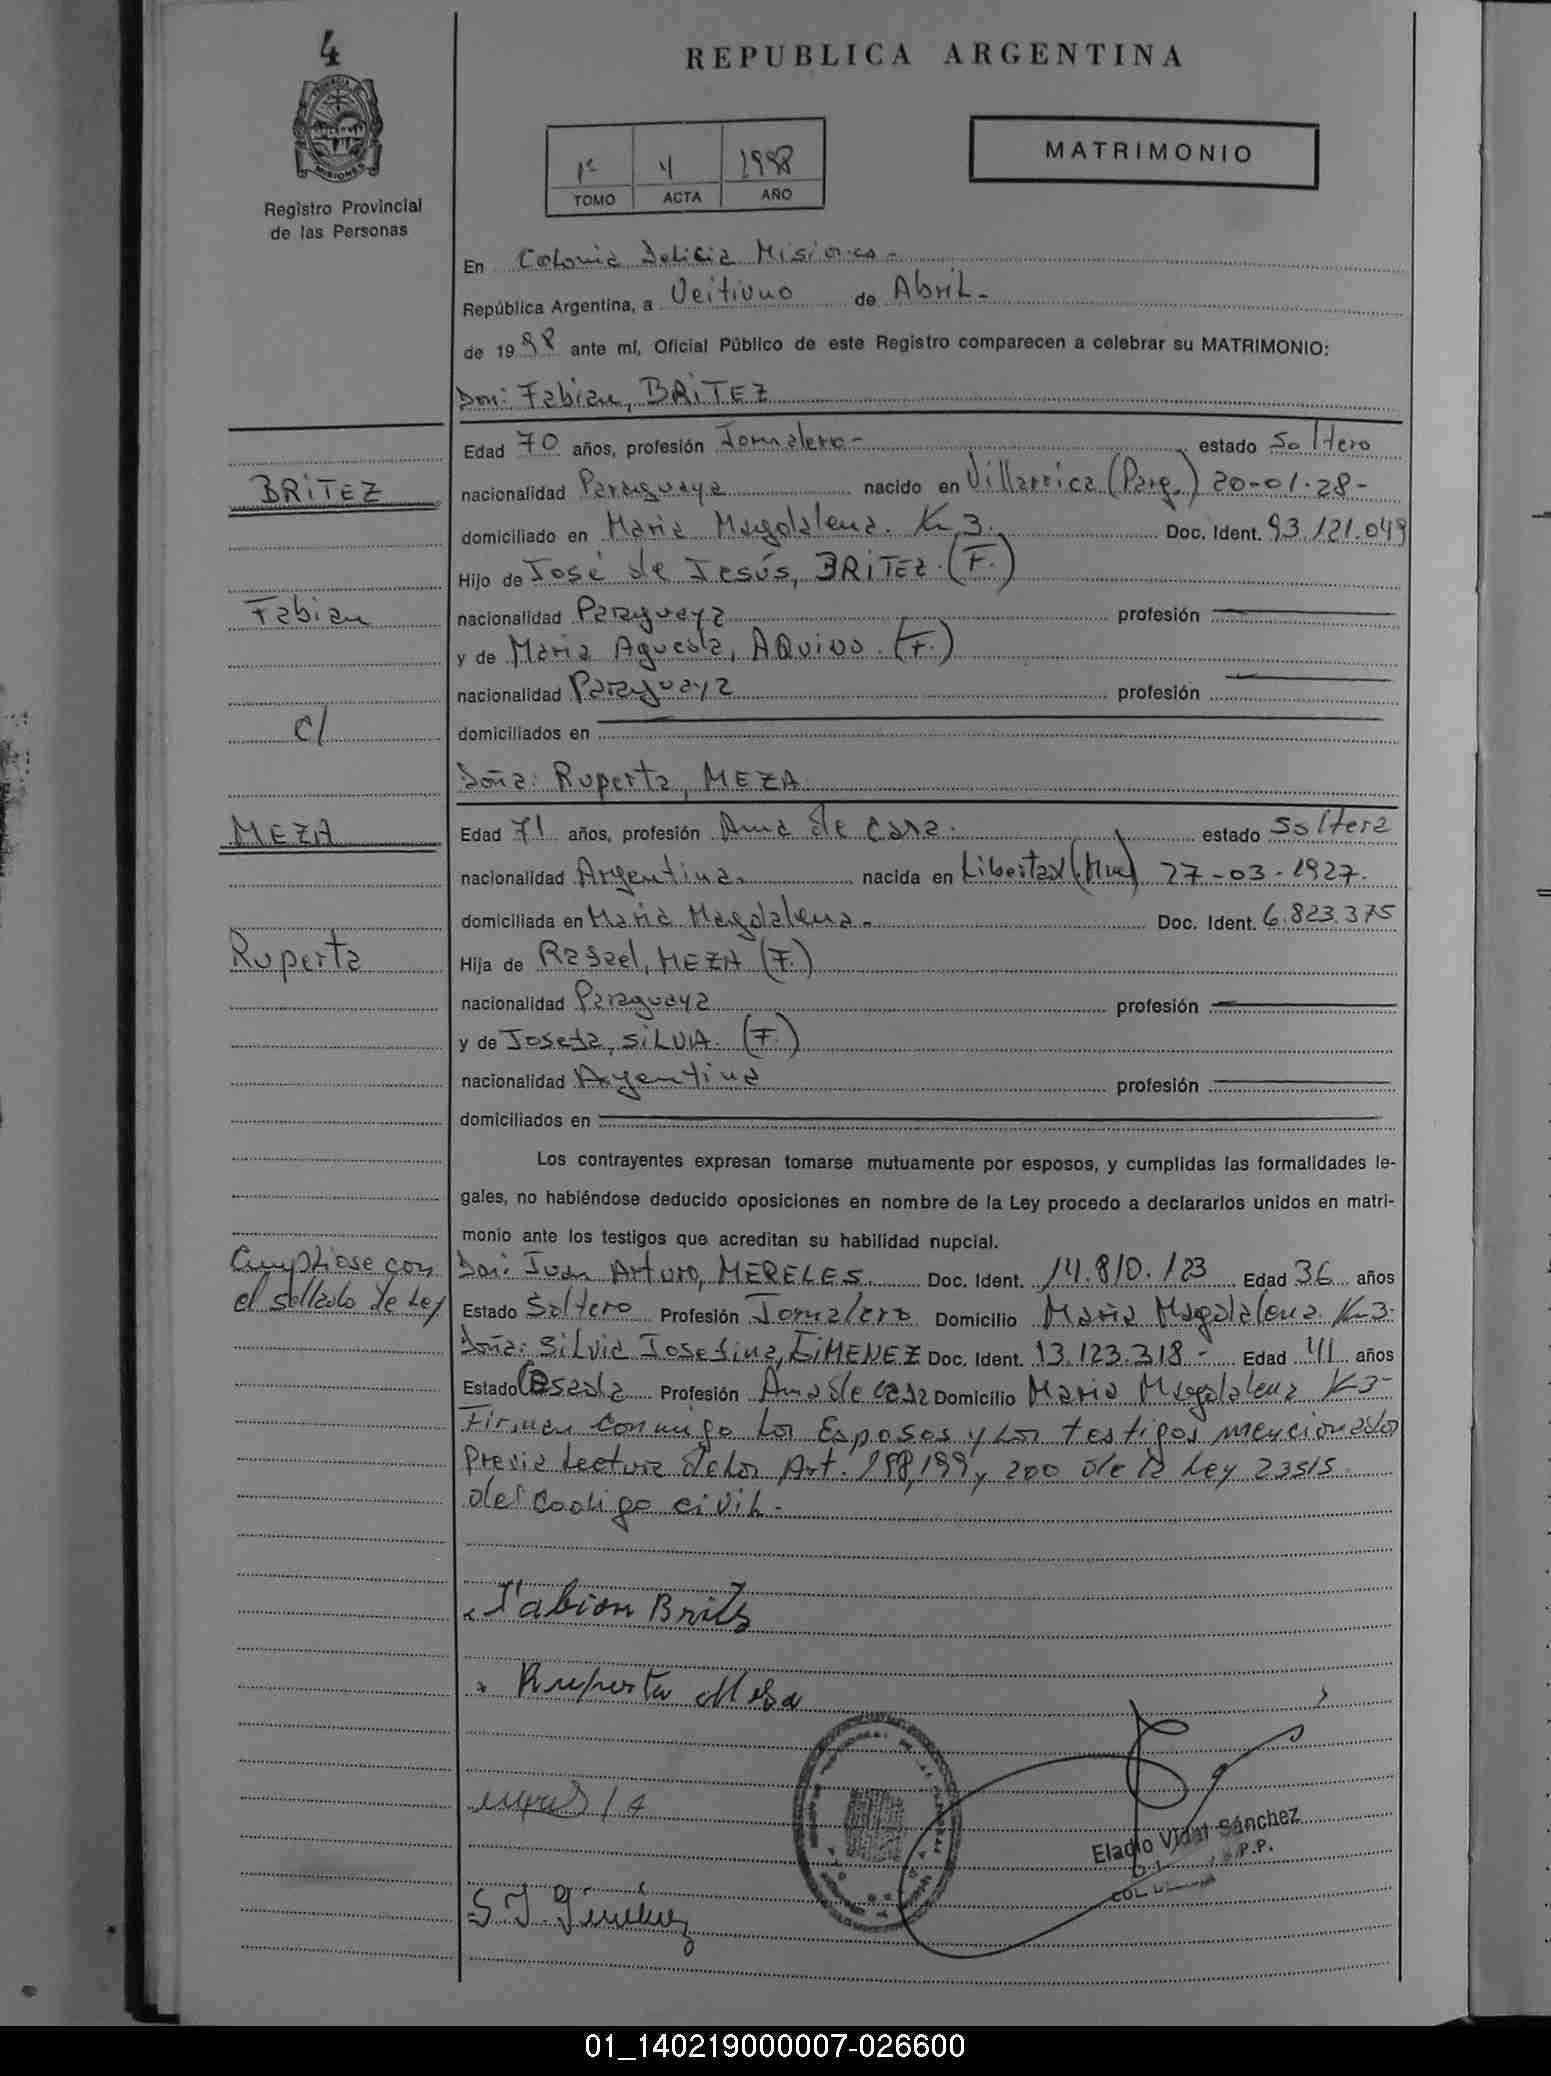 4
REPUBLICA ARGENTINA
PROVINCIA DE
MISIONES
Registro Provincial
de las Personas
1º 4 1998
TOMO ACTA AÑO
MATRIMONIO
En Colonia Delicia Misiones -
República Argentina, a Veitiuno de Abril -
de 1998 ante mí, Oficial Público de este Registro comparecen a celebrar su MATRIMONIO:
Don: Fabian, BRiTEZ
Edad 70 años, profesión Jornalero - estado Soltero
BRiTEZ
nacionalidad Paraguaya nacido en Villarrica (Parg.) 20-01-28-
domiciliado en Maria Magdalena. Km 3. Doc. Ident. 93.121.049
Hijo de José de Jesús, BRiTEZ. (F.)
Fabian
nacionalidad Paraguaya profesión
y de Maria Agueda, AQuino. (F.)
nacionalidad Paraguaya profesión
c/
domiciliados en
Doña: Ruperta, MEZA
MEZA
Edad 71 años, profesión Ama de casa. estado Soltera
nacionalidad Argentina. nacida en Libertad (Mnes) 27-03-1927.
domiciliada en Maria Magdalena - Doc. Ident. 6.823.375
Ruperta
Hija de Rafael, MEZA (F.)
nacionalidad Paraguaya profesión
y de Josefa, SiLVA. (F.)
nacionalidad Argentina profesión
domiciliados en
Los contrayentes expresan tomarse mutuamente por esposos, y cumplidas las formalidades le-
gales, no habiéndose deducido oposiciones en nombre de la Ley procedo a declararlos unidos en matri-
monio ante los testigos que acreditan su habilidad nupcial.
Cumpliose con
el sellado de Ley
Don: Juan Arturo, MERELES Doc. Ident. 14.810.123 Edad 36 años
Estado Soltero Profesión Jornalero Domicilio Maria Magdalena Km 3-
Doña: Silvia Josefina, GiMENEZ Doc. Ident. 13.123.318 - Edad 41 años
Estado Casada Profesión Ama de casa Domicilio Maria Magdalena K-3-
Firman conmigo los Esposos y los testigos mencionados
Previa lectura de los Art. 198, 199 y 200 de la Ley 23515
del Codigo civil -
Fabian Britz
Ruperta Meza
S. J. Gimenez
Eladio Vidal Sánchez
P.P.
01_140219000007-026600